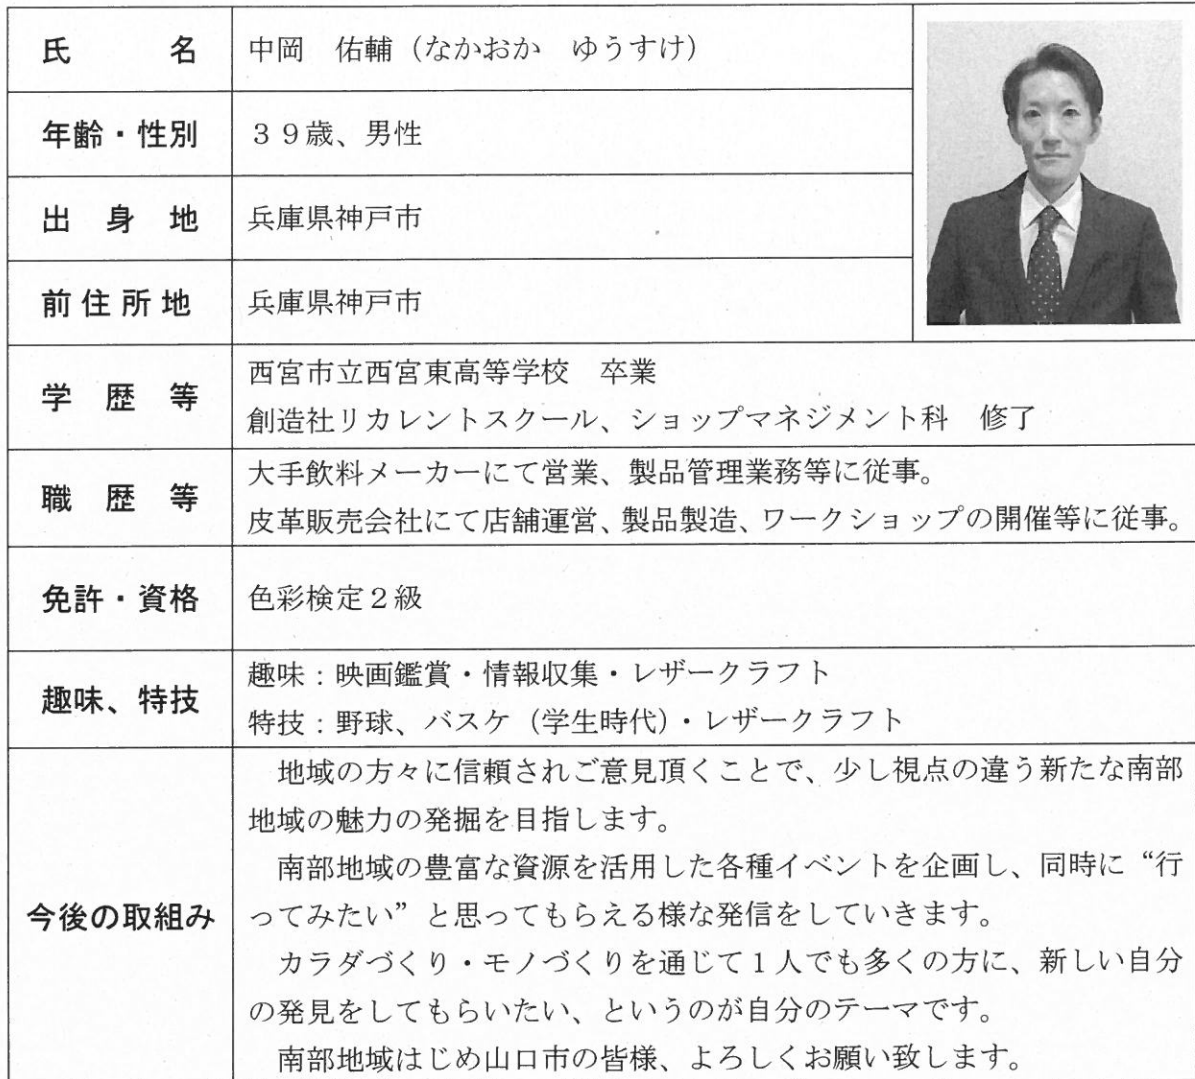 氏　名　中岡　佑輔（なかおか　ゆうすけ）
年齢・性別　３９歳、男性
出身地　兵庫県神戸市
前住所地　兵庫県神戸市
学歴等
西宮市立西宮東高等学校　卒業
創造社リカレントスクール、ショップマネジメント科　修了
職歴等
大手飲料メーカーにて営業、製品管理業務等に従事。
皮革販売会社にて店舗運営、製品製造、ワークショップの開催等に従事。
免許・資格　色彩検定２級
趣味、特技
趣味：映画鑑賞・情報収集・レザークラフト
特技：野球、バスケ（学生時代）・レザークラフト
今後の取組み
地域の方々に信頼されご意見頂くことで、少し視点の違う新たな南部
地域の魅力の発掘を目指します。
南部地域の豊富な資源を活用した各種イベントを企画し、同時に“行
ってみたい”と思ってもらえる様な発信をしていきます。
カラダづくり・モノづくりを通じて１人でも多くの方に、新しい自分
の発見をしてもらいたい、というのが自分のテーマです。
南部地域はじめ山口市の皆様、よろしくお願い致します。